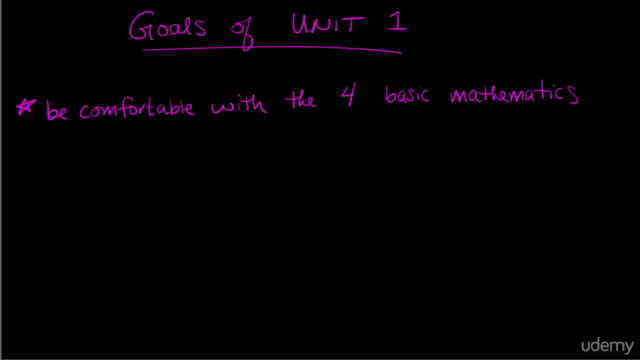 Goals of UNIT 1
* be comfortable with the 4 basic mathematics
udemy